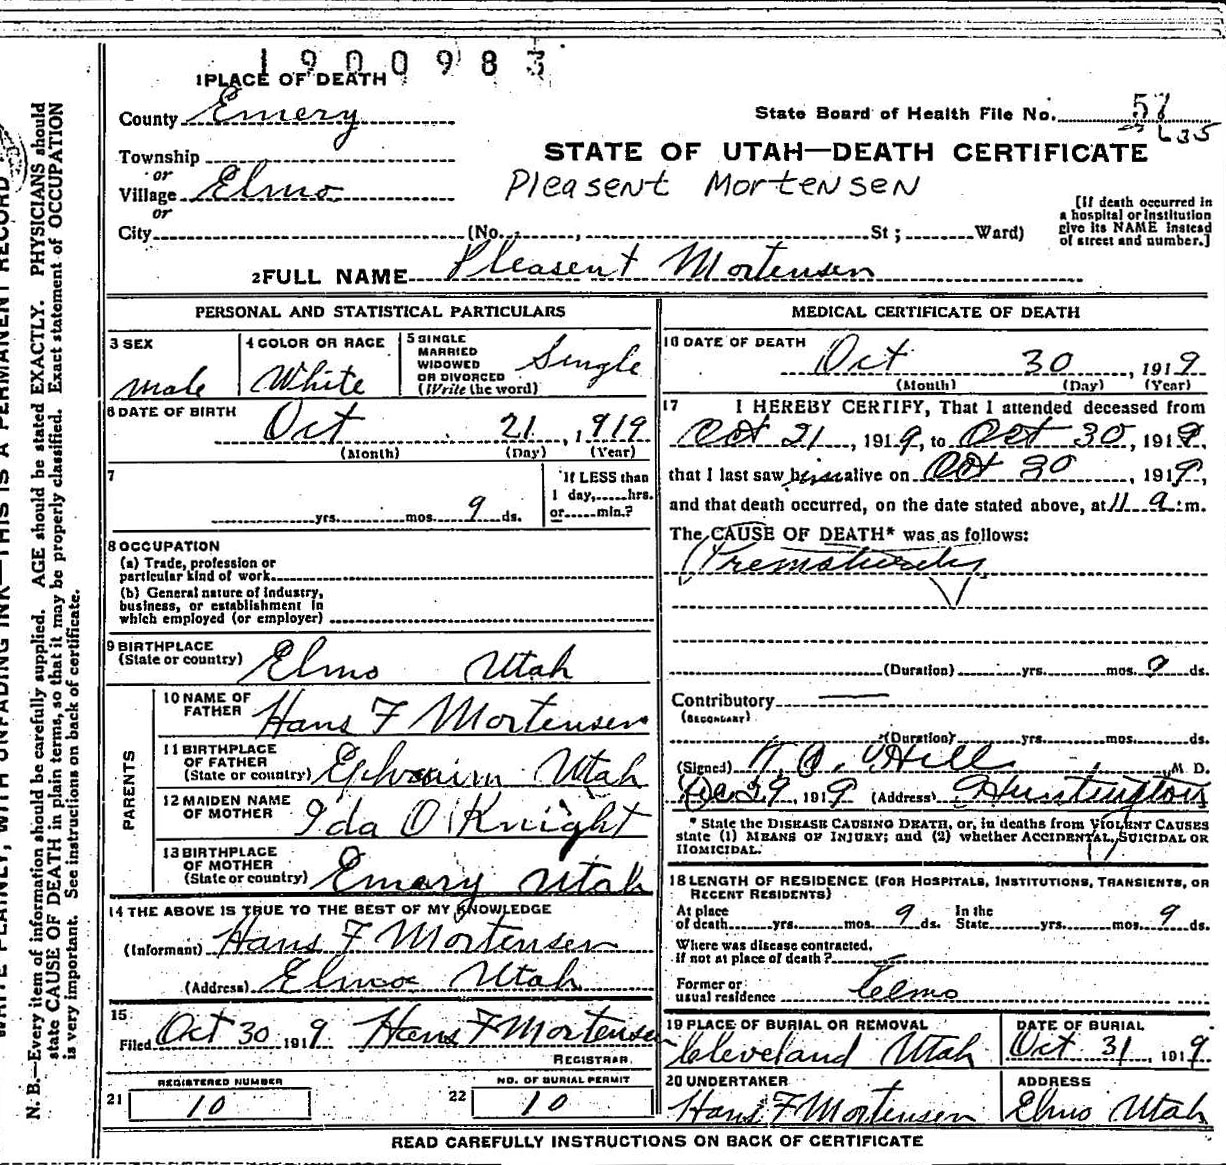 1900983
1 PLACE OF DEATH
County Emery
State Board of Health File No. 57
635
Township
STATE OF UTAH—DEATH CERTIFICATE
or
Village Elmo
Pleasent Mortensen
or
City (No. , St ; Ward)
[If death occurred in
a hospital or institution
give its NAME instead
of street and number.]
2 FULL NAME Pleasent Mortensen
PERSONAL AND STATISTICAL PARTICULARS
3 SEX
male
4 COLOR OR RACE
White
5 SINGLE
MARRIED
WIDOWED
OR DIVORCED
(Write the word)
Single
6 DATE OF BIRTH
Oct 21, 1919
(Month) (Day) (Year)
7
yrs. mos. 9 ds.
If LESS than
1 day,.....hrs.
or.....min.?
8 OCCUPATION
(a) Trade, profession or
particular kind of work
(b) General nature of industry,
business, or establishment in
which employed (or employer)
9 BIRTHPLACE
(State or country) Elmo Utah
PARENTS
10 NAME OF
FATHER Hans F Mortensen
11 BIRTHPLACE
OF FATHER
(State or country) Ephraim Utah
12 MAIDEN NAME
OF MOTHER Ida O Knight
13 BIRTHPLACE
OF MOTHER
(State or country) Emary Utah
14 THE ABOVE IS TRUE TO THE BEST OF MY KNOWLEDGE
(Informant) Hans F Mortensen
(Address) Elmo Utah
15
Filed Oct 30 1919 Hans F Mortensen
REGISTRAR
REGISTERED NUMBER
21 10
NO. OF BURIAL PERMIT
22 10
MEDICAL CERTIFICATE OF DEATH
16 DATE OF DEATH
Oct 30, 1919
(Month) (Day) (Year)
17 I HEREBY CERTIFY, That I attended deceased from
Oct 21, 1919, to Oct 30, 1919,
that I last saw him alive on Oct 30, 1919,
and that death occurred, on the date stated above, at 11 a.m.
The CAUSE OF DEATH* was as follows:
Prematurity
(Duration) yrs. mos. 9 ds.
Contributory
(SECONDARY)
(Duration) yrs. mos. ds.
(Signed) Hill M D.
29, 1919 (Address) Huntington
* State the DISEASE CAUSING DEATH, or, in deaths from VIOLENT CAUSES
state (1) MEANS OF INJURY; and (2) whether ACCIDENTAL, SUICIDAL OR
HOMICIDAL.
18 LENGTH OF RESIDENCE (FOR HOSPITALS, INSTITUTIONS, TRANSIENTS, OR
RECENT RESIDENTS)
At place
of death yrs. mos. 9 ds.
In the
State yrs. mos. 9 ds.
Where was disease contracted,
if not at place of death?
Former or
usual residence Elmo
19 PLACE OF BURIAL OR REMOVAL
Cleveland Utah
DATE OF BURIAL
Oct 31, 1919
20 UNDERTAKER
Hans F Mortensen
ADDRESS
Elmo Utah
READ CAREFULLY INSTRUCTIONS ON BACK OF CERTIFICATE
WRITE PLAINLY, WITH UNFADING INK—THIS IS A PERMANENT RECORD
N. B.—Every item of information should be carefully supplied. AGE should be stated EXACTLY. PHYSICIANS should
state CAUSE OF DEATH in plain terms, so that it may be properly classified. Exact statement of OCCUPATION
is very important. See instructions on back of certificate.